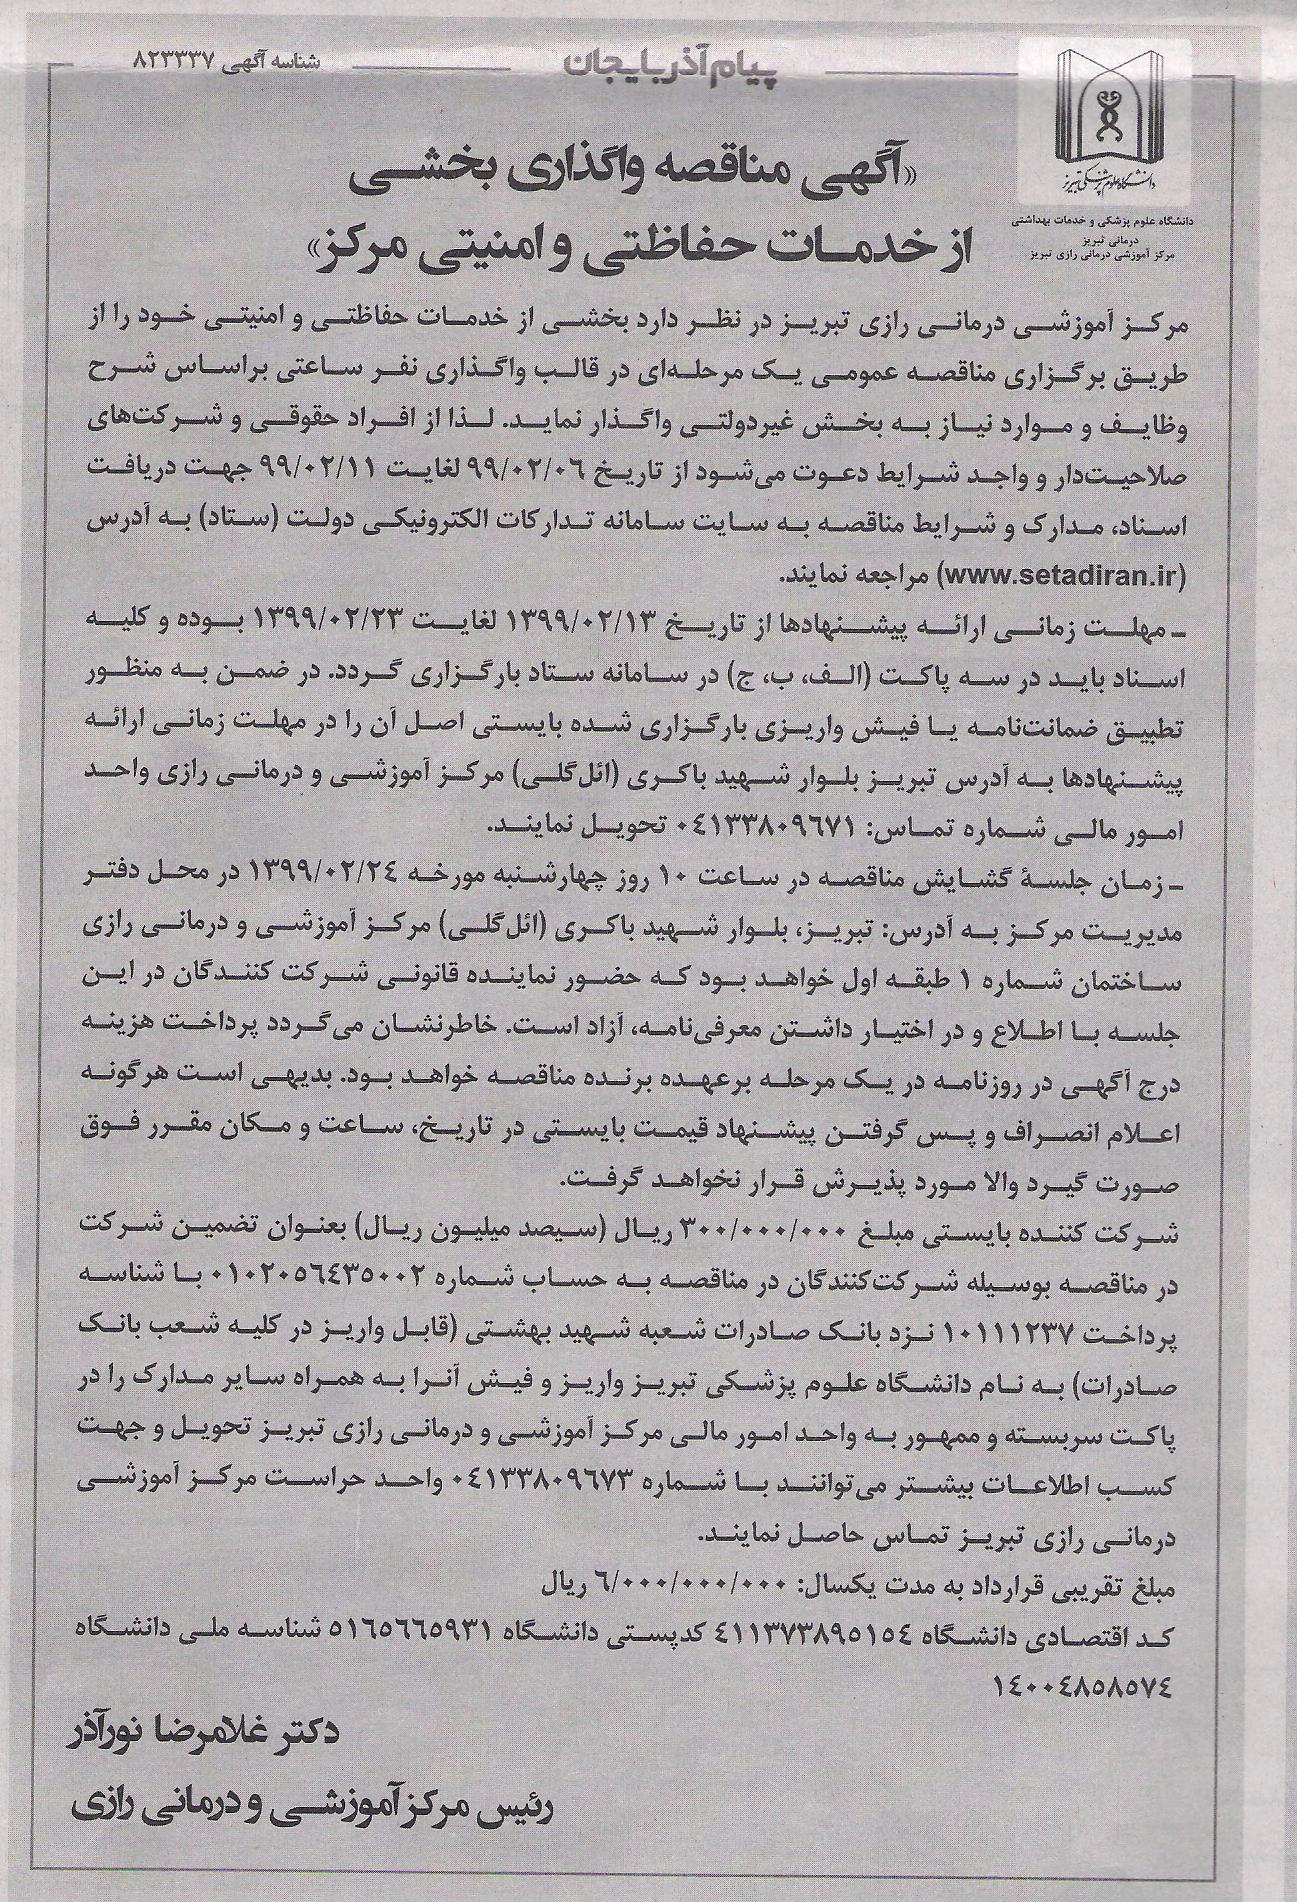 شناسه آگهی ۸۲۳۳۳۷
پیام آذربایجان
دانشگاه علوم پزشکی تبریز
دانشگاه علوم پزشکی و خدمات بهداشتی
درمانی تبریز
مرکز آموزشی درمانی رازی تبریز
«آگهی مناقصه واگذاری بخشی
از خدمات حفاظتی و امنیتی مرکز»
مرکز آموزشی درمانی رازی تبریز در نظر دارد بخشی از خدمات حفاظتی و امنیتی خود را از
طریق برگزاری مناقصه عمومی یک مرحله‌ای در قالب واگذاری نفر ساعتی براساس شرح
وظایف و موارد نیاز به بخش غیردولتی واگذار نماید. لذا از افراد حقوقی و شرکت‌های
صلاحیت‌دار و واجد شرایط دعوت می‌شود از تاریخ ۹۹/۰۲/۰۶ لغایت ۹۹/۰۲/۱۱ جهت دریافت
اسناد، مدارک و شرایط مناقصه به سایت سامانه تدارکات الکترونیکی دولت (ستاد) به آدرس
(www.setadiran.ir) مراجعه نمایند.
ـ مهلت زمانی ارائه پیشنهادها از تاریخ ۱۳۹۹/۰۲/۱۳ لغایت ۱۳۹۹/۰۲/۲۳ بوده و کلیه
اسناد باید در سه پاکت (الف، ب، ج) در سامانه ستاد بارگزاری گردد. در ضمن به منظور
تطبیق ضمانت‌نامه یا فیش واریزی بارگزاری شده بایستی اصل آن را در مهلت زمانی ارائه
پیشنهادها به آدرس تبریز بلوار شهید باکری (ائل‌گلی) مرکز آموزشی و درمانی رازی واحد
امور مالی شماره تماس: ۰۴۱۳۳۸۰۹۶۷۱ تحویل نمایند.
ـ زمان جلسهٔ گشایش مناقصه در ساعت ۱۰ روز چهارشنبه مورخه ۱۳۹۹/۰۲/۲۴ در محل دفتر
مدیریت مرکز به آدرس: تبریز، بلوار شهید باکری (ائل‌گلی) مرکز آموزشی و درمانی رازی
ساختمان شماره ۱ طبقه اول خواهد بود که حضور نماینده قانونی شرکت کنندگان در این
جلسه با اطلاع و در اختیار داشتن معرفی‌نامه، آزاد است. خاطرنشان می‌گردد پرداخت هزینه
درج آگهی در روزنامه در یک مرحله برعهده برنده مناقصه خواهد بود. بدیهی است هرگونه
اعلام انصراف و پس گرفتن پیشنهاد قیمت بایستی در تاریخ، ساعت و مکان مقرر فوق
صورت گیرد والا مورد پذیرش قرار نخواهد گرفت.
شرکت کننده بایستی مبلغ ۳۰۰/۰۰۰/۰۰۰ ریال (سیصد میلیون ریال) بعنوان تضمین شرکت
در مناقصه بوسیله شرکت‌کنندگان در مناقصه به حساب شماره ۰۱۰۲۰۵۶۴۳۵۰۰۲ با شناسه
پرداخت ۱۰۱۱۱۲۳۷ نزد بانک صادرات شعبه شهید بهشتی (قابل واریز در کلیه شعب بانک
صادرات) به نام دانشگاه علوم پزشکی تبریز واریز و فیش آنرا به همراه سایر مدارک را در
پاکت سربسته و ممهور به واحد امور مالی مرکز آموزشی و درمانی رازی تبریز تحویل و جهت
کسب اطلاعات بیشتر می‌توانند با شماره ۰۴۱۳۳۸۰۹۶۷۳ واحد حراست مرکز آموزشی
درمانی رازی تبریز تماس حاصل نمایند.
مبلغ تقریبی قرارداد به مدت یکسال: ۶/۰۰۰/۰۰۰/۰۰۰ ریال
کد اقتصادی دانشگاه ۴۱۱۳۷۳۸۹۵۱۵۴ کدپستی دانشگاه ۵۱۶۵۶۶۵۹۳۱ شناسه ملی دانشگاه
۱۴۰۰۴۸۵۸۵۷۴
دکتر غلامرضا نورآذر
رئیس مرکز آموزشی و درمانی رازی